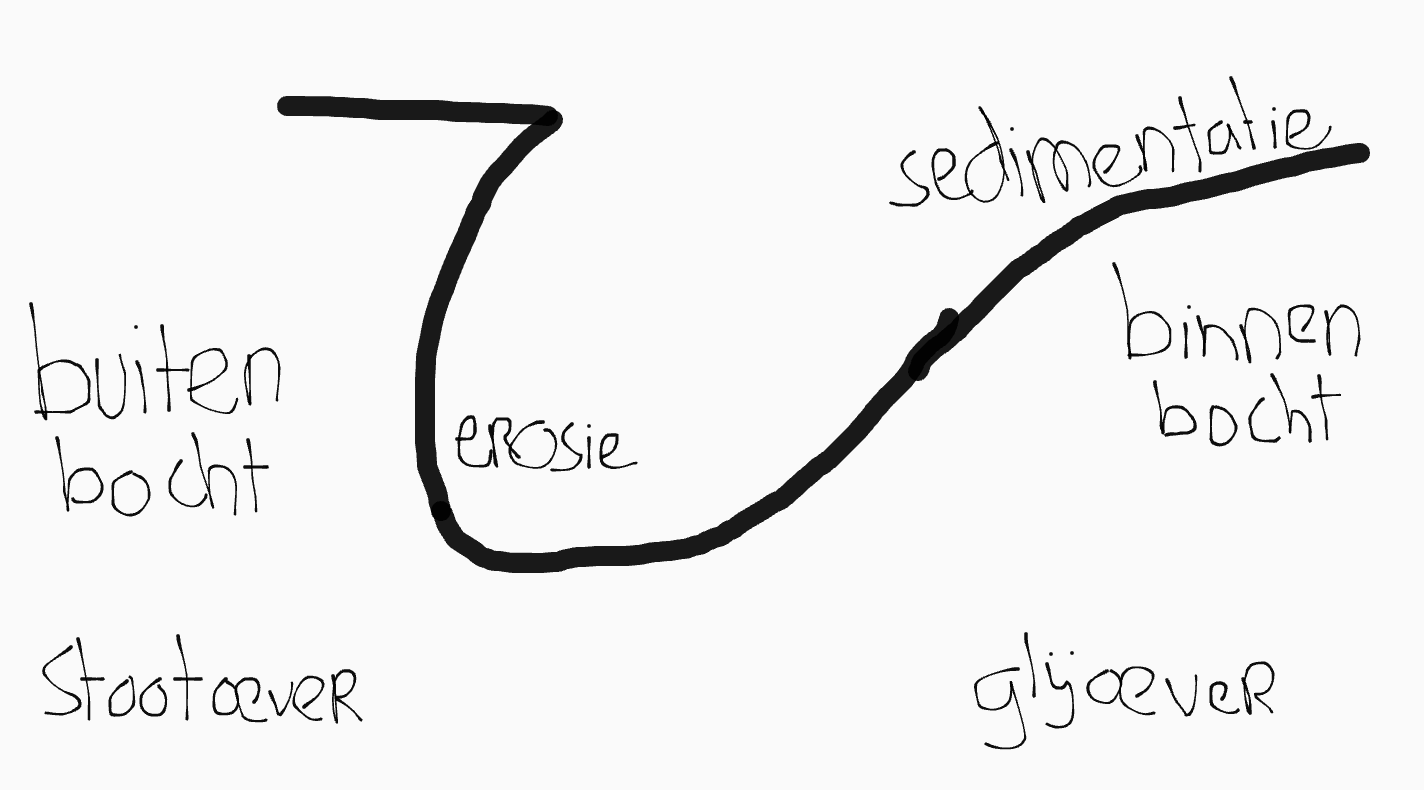 sedimentatie
buiten
bocht
erosie
binnen
bocht
Stootoever
glijoever